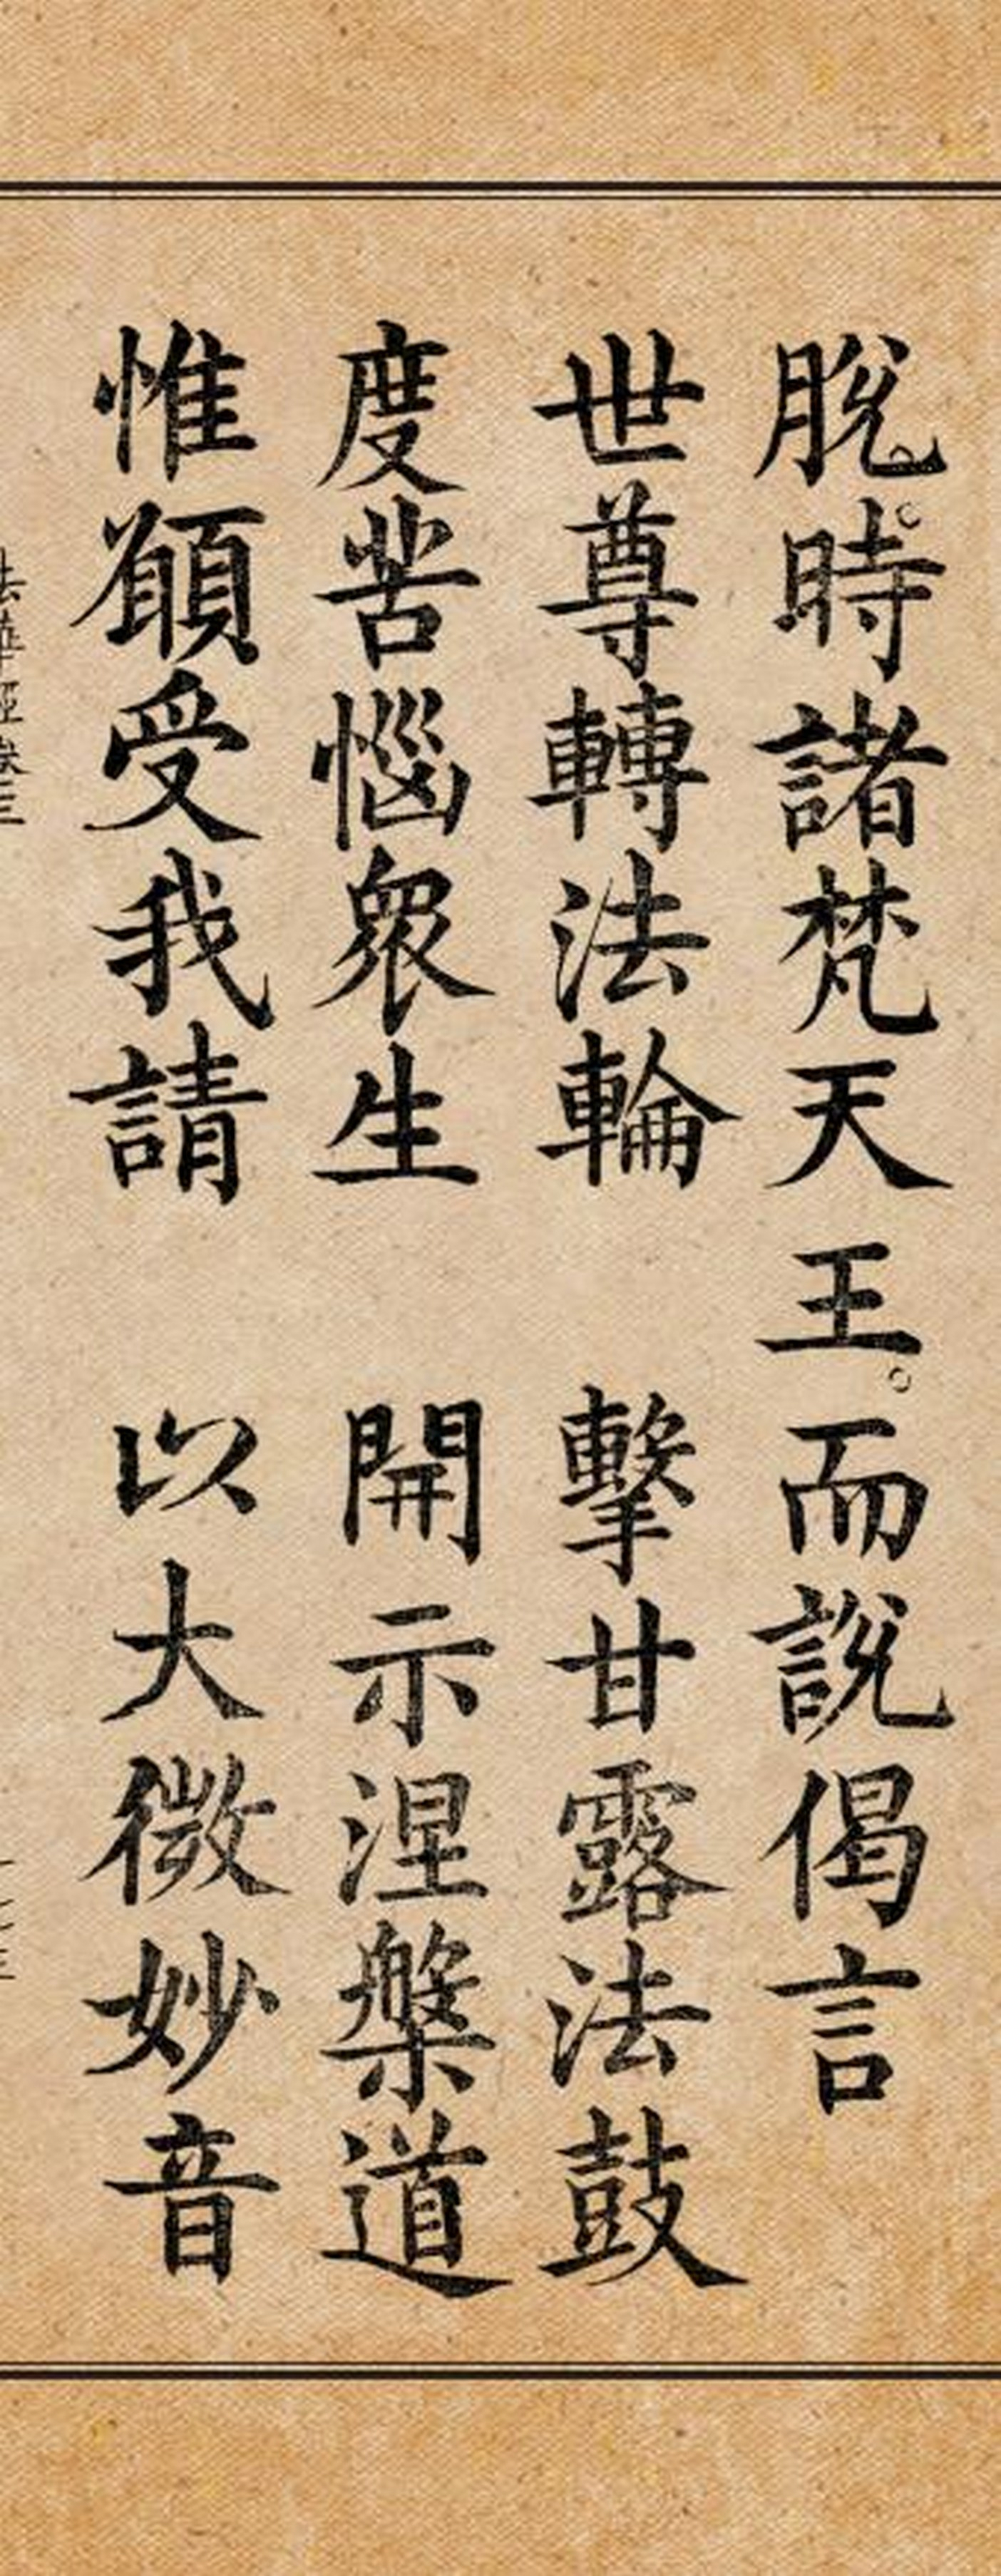 脫。時諸梵天王。而說偈言
世尊轉法輪　擊甘露法鼓
度苦惱衆生　開示涅槃道
惟願受我請　以大微妙音
法華經卷三